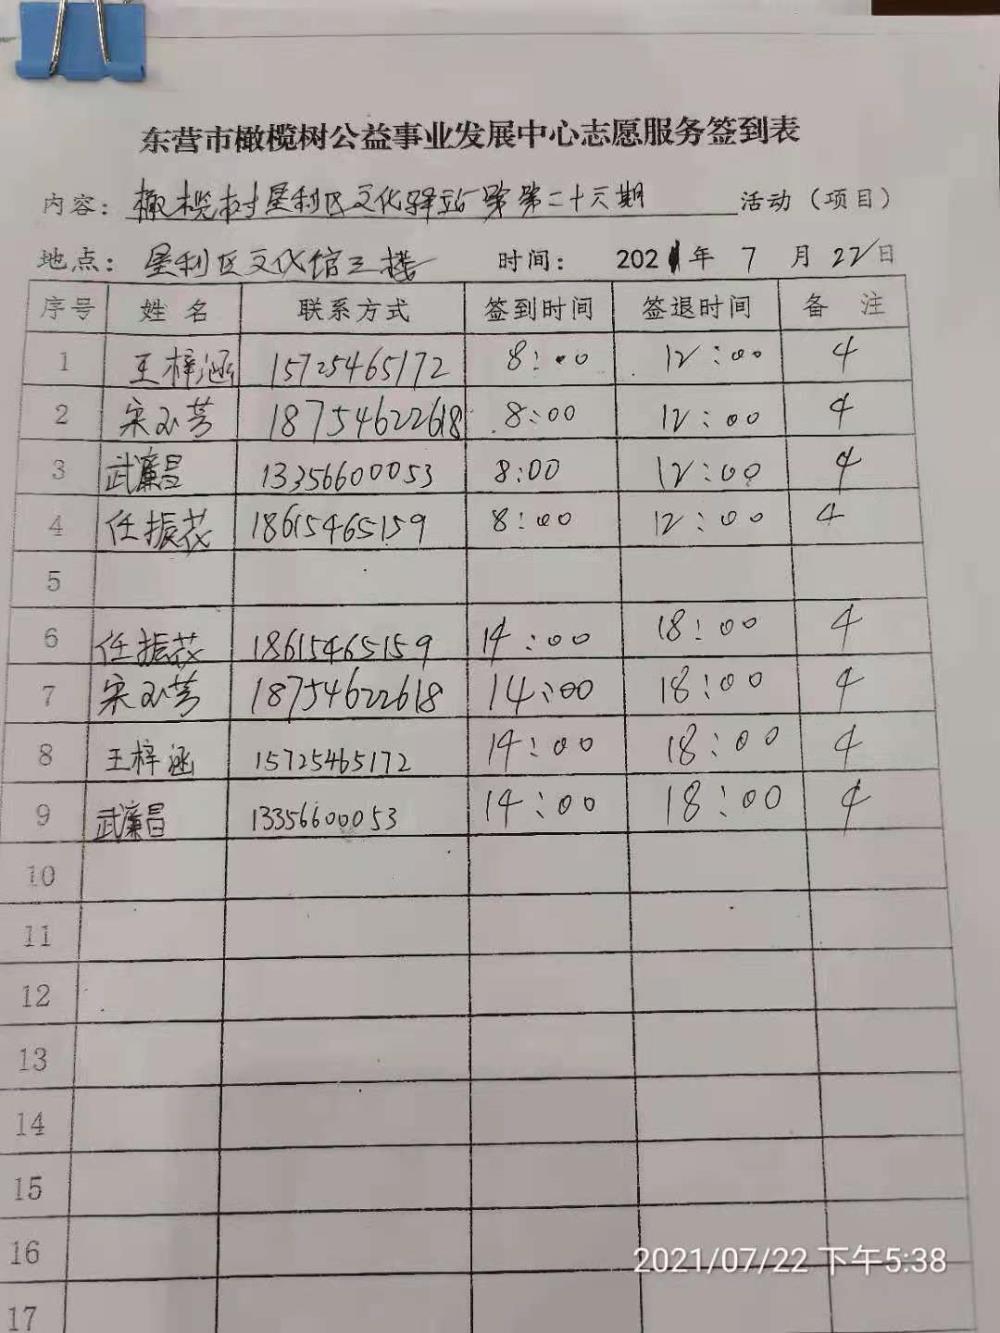 东营市橄榄树公益事业发展中心志愿服务签到表
内容：橄榄树垦利区文化驿站第二十六期 活动（项目）
地点：垦利区文化馆三楼 时间：2021年7月22日
序号 姓名 联系方式 签到时间 签退时间 备注
1 王梓涵 15725465172 8:00 12:00 4
2 宋小芳 18754622618 8:00 12:00 4
3 武廉昌 13356600053 8:00 12:00 4
4 任振花 18615465159 8:00 12:00 4
5
6 任振花 18615465159 14:00 18:00 4
7 宋小芳 18754622618 14:00 18:00 4
8 王梓涵 15725465172 14:00 18:00 4
9 武廉昌 13356600053 14:00 18:00 4
10
11
12
13
14
15
16
17
2021/07/22 下午5:38